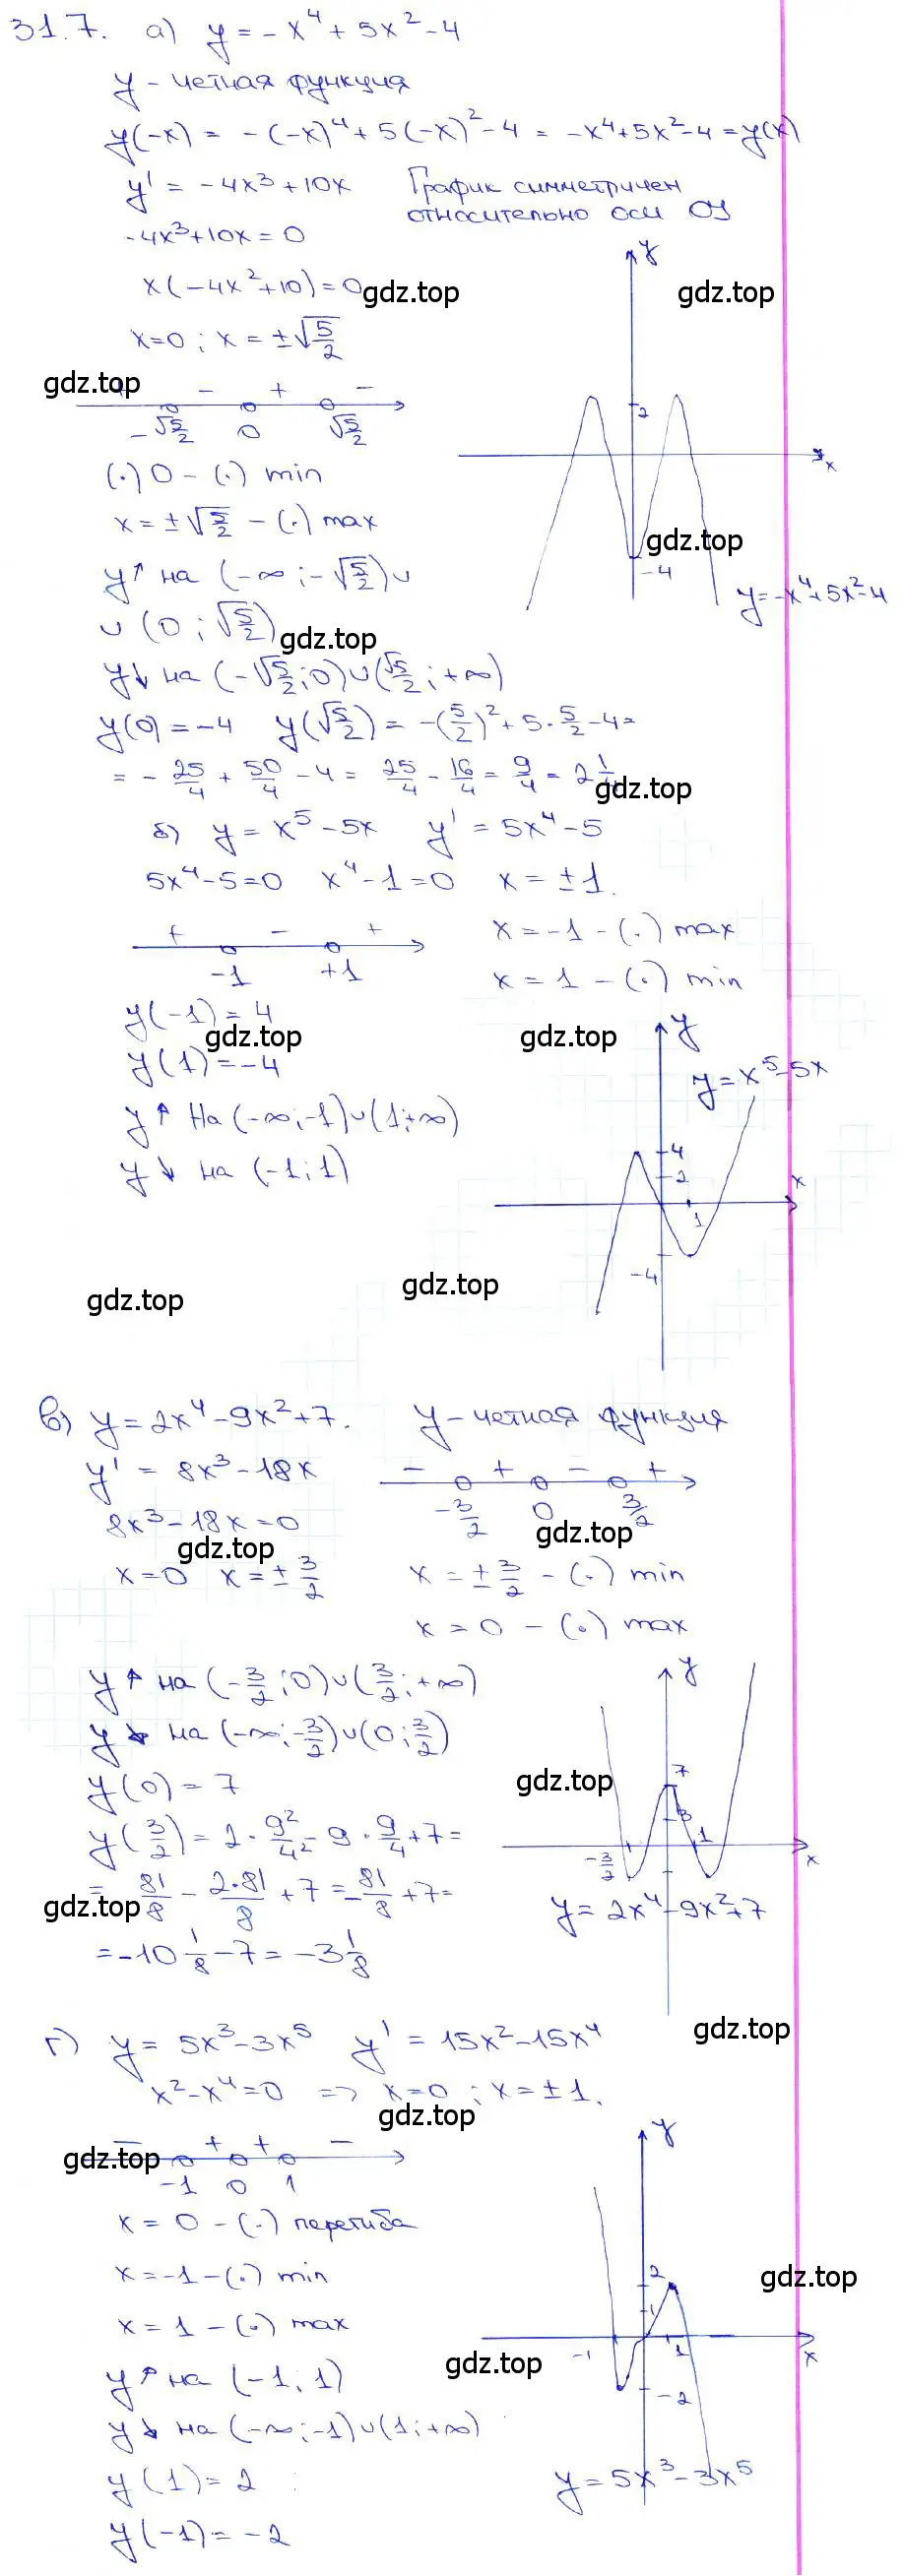 31.7. а) y = -x⁴ + 5x² - 4
y - четная функция
y(-x) = -(-x)⁴ + 5(-x)² - 4 = -x⁴ + 5x² - 4 = y(x)
y' = -4x³ + 10x График симметричен
относительно оси OY
-4x³ + 10x = 0
x(-4x² + 10) = 0
gdz.top gdz.top
x = 0 ; x = ±√5/2
gdz.top
+ - + -
-√5/2 0 √5/2
(·) 0 - (·) min
x = ±√5/2 - (·) max
y↑ на (-∞; -√5/2) ∪
∪ (0; √5/2)
y
2
x
gdz.top
-4
y = -x⁴ + 5x² - 4
gdz.top
y↓ на (-√5/2; 0) ∪ (√5/2; +∞)
y(0) = -4 y(√5/2) = -(5/2)² + 5·5/2 - 4 =
= -25/4 + 50/4 - 4 = 25/4 - 16/4 = 9/4 = 2 1/4
gdz.top
б) y = x⁵ - 5x y' = 5x⁴ - 5
5x⁴ - 5 = 0 x⁴ - 1 = 0 x = ±1.
+ - +
-1 +1
x = -1 - (·) max
x = 1 - (·) min
y(-1) = 4
gdz.top gdz.top
y(1) = -4
y↑ на (-∞; -1) ∪ (1; +∞)
y↓ на (-1; 1)
y
y = x⁵ - 5x
4
2
x
1
-4
gdz.top gdz.top
в) y = 2x⁴ - 9x² + 7. y - четная функция
y' = 8x³ - 18x
- + - +
-3/2 0 3/2
8x³ - 18x = 0
gdz.top gdz.top
x = 0 x = ±3/2 x = ±3/2 - (·) min
x = 0 - (·) max
y↑ на (-3/2; 0) ∪ (3/2; +∞)
y↓ на (-∞; -3/2) ∪ (0; 3/2)
y(0) = 7
gdz.top
y(3/2) = 2·9²/4² - 9·9/4 + 7 =
gdz.top
= 81/8 - 2·81/8 + 7 = -81/8 + 7 =
= -10 1/8 - 7 = -3 1/8
y
7
3
1
-3/2
x
y = 2x⁴ - 9x² + 7
г) y = 5x³ - 3x⁵ y' = 15x² - 15x⁴
gdz.top
x² - x⁴ = 0 => x = 0 ; x = ±1.
gdz.top
gdz.top
- + + -
-1 0 1
x = 0 - (·) перегиба
x = -1 - (·) min
x = 1 - (·) max
y↑ на (-1; 1)
y↓ на (-∞; -1) ∪ (1; +∞)
y(1) = 2
y(-1) = -2
y
2
gdz.top
1
-1
1
x
gdz.top
-2
y = 5x³ - 3x⁵